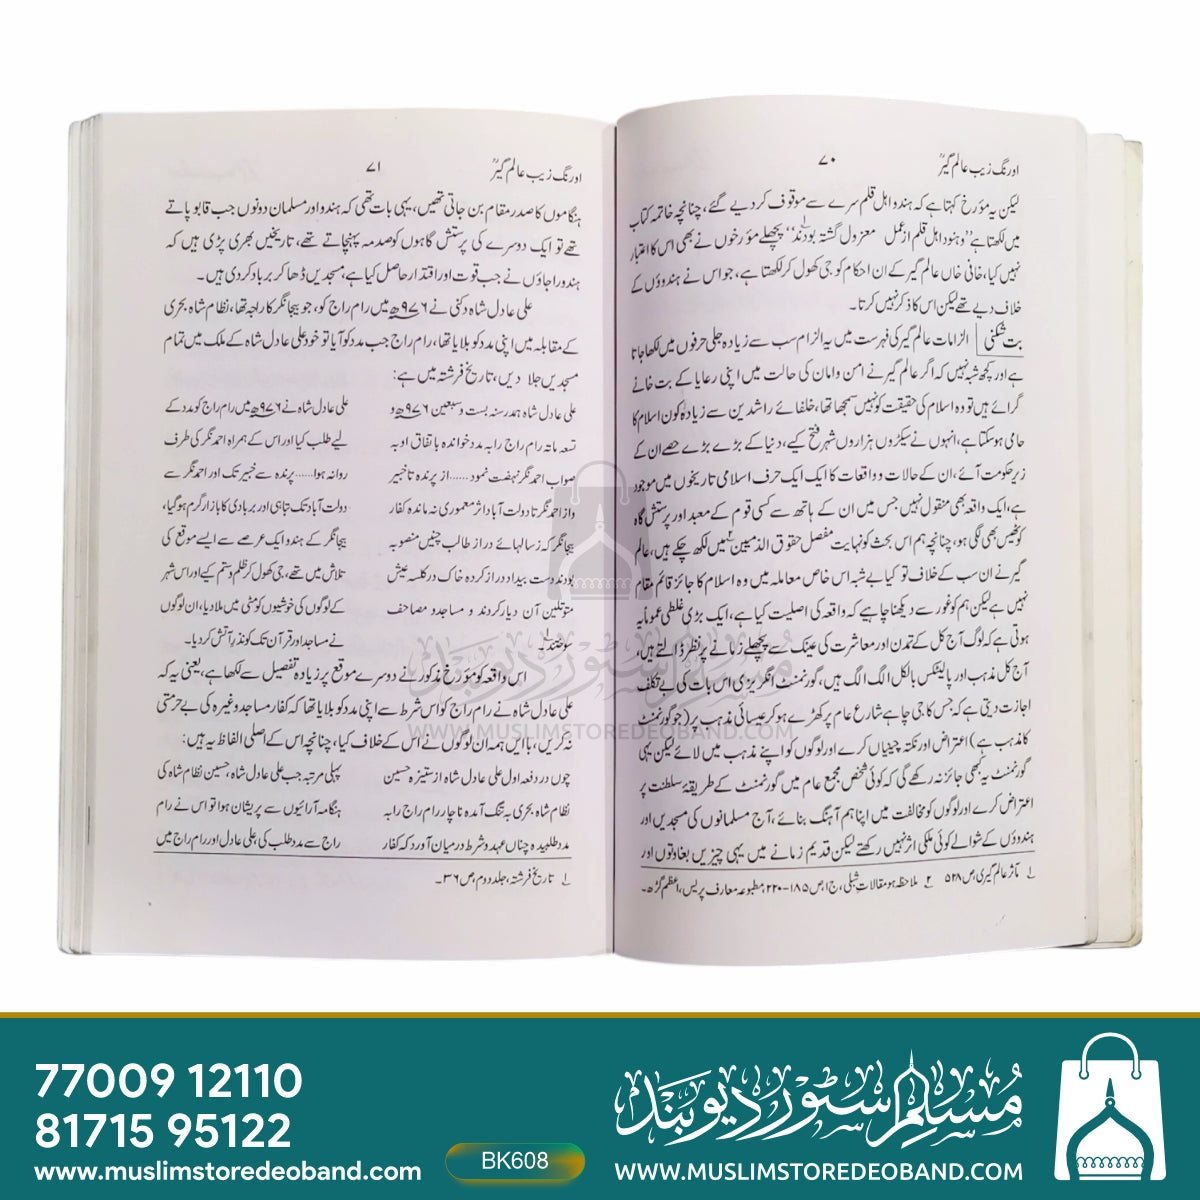 اورنگ زیب عالم گیرؒ
۷۰
لیکن یہ مؤرخ کہتا ہے کہ ہندو اہل قلم سرے سے موقوف کر دیے گئے، چنانچہ خاتمہ کتاب
میں لکھتا ہے ”وہنود اہل قلم از عمل معزول گشتہ بودند“ پچھلے مؤرخوں نے بھی اس کا اعتبار
نہیں کیا، خافی خاں عالم گیر کے ان احکام کو جی کھول کر لکھتا ہے، جو اس نے ہندوؤں کے
خلاف دیے تھے لیکن اس کا ذکر نہیں کرتا۔
بت شکنی الزامات عالم گیر کی فہرست میں یہ الزام سب سے زیادہ جلی حرفوں میں لکھا جاتا
ہے اور کچھ شبہ نہیں کہ اگر عالم گیر نے امن وامان کی حالت میں اپنی رعایا کے بت خانے
گرائے ہیں تو وہ اسلام کی حقیقت کو نہیں سمجھا تھا، خلفائے راشدین سے زیادہ کون اسلام کا
حامی ہوسکتا ہے، انہوں نے سیکڑوں ہزاروں شہر فتح کیے، دنیا کے بڑے بڑے حصے ان کے
زیرحکومت آئے، ان کے حالات و واقعات کا ایک ایک حرف اسلامی تاریخوں میں موجود
ہے، ایک واقعہ بھی منقول نہیں جس میں ان کے ہاتھ سے کسی قوم کے معبد اور پرستش گاہ
کو ٹھیس بھی لگی ہو، چنانچہ ہم اس بحث کو نہایت مفصل حقوق الذمیین ۲ میں لکھ چکے ہیں، عالم
گیر نے ان سب کے خلاف تو کیا بے شبہ اس خاص معاملہ میں وہ اسلام کا جائز قائم مقام
نہیں ہے لیکن ہم کو غور سے دیکھنا چاہیے کہ واقعہ کی اصلیت کیا ہے، ایک بڑی غلطی عموماً یہ
ہوتی ہے کہ لوگ آج کل کے تمدن اور معاشرت کی عینک سے پچھلے زمانے پر نظر ڈالتے ہیں،
آج کل مذہب اور پالیٹکس بالکل الگ الگ ہیں، گورنمنٹ انگریزی اس بات کی بے تکلف
اجازت دیتی ہے کہ جس کا جی چاہے شارع عام پر کھڑے ہوکر عیسائی مذہب پر (جو گورنمنٹ
کا مذہب ہے) اعتراض اور نکتہ چینیاں کرے اور لوگوں کو اپنے مذہب میں لائے لیکن یہی
گورنمنٹ یہ بھی جائز نہ رکھے گی کہ کوئی شخص مجمع عام میں گورنمنٹ کے طریقۂ سلطنت پر
اعتراض کرے اور لوگوں کو مخالفت میں اپنا ہم آہنگ بنائے، آج مسلمانوں کی مسجدیں اور
ہندوؤں کے شوالے کوئی ملکی اثر نہیں رکھتے لیکن قدیم زمانے میں یہی چیزیں بغاوتوں اور
۱ مآثر عالم گیری ص ۵۲۸ ۲ ملاحظہ ہو مقالات شبلی، ج۱، ص ۱۸۵-۲۲۰، مطبوعہ معارف پریس، اعظم گڑھ۔
اورنگ زیب عالم گیرؒ
۷۱
ہنگاموں کا صدر مقام بن جاتی تھیں، یہی بات تھی کہ ہندو اور مسلمان دونوں جب قابو پاتے
تھے تو ایک دوسرے کی پرستش گاہوں کو صدمہ پہنچاتے تھے، تاریخیں بھری پڑی ہیں کہ
ہندو راجاؤں نے جب قوت اور اقتدار حاصل کیا ہے، مسجدیں ڈھا کر برباد کردی ہیں۔
علی عادل شاہ دکنی نے ۹۷۶ھ میں رام راج کو، جو بیجانگر کا راجہ تھا، نظام شاہ بحری
کے مقابلہ میں اپنی مدد کو بلایا تھا، رام راج جب مدد کو آیا تو خود علی عادل شاہ کے ملک میں تمام
مسجدیں جلا دیں، تاریخ فرشتہ میں ہے:
علی عادل شاہ ہمدرسنہ بست و سبعین ۹۷۶ھ و
تسعہ ماتہ رام راج را بہ مدد خواندہ باتفاق او بہ
صواب احمد نگر نہضت نمود......از پرندہ تا خبیر
واز احمد نگر تا دولت آباد اثر معموری نہ ماندہ کفار
بیجانگر کہ زسالہائے دراز طالب چنیں منصوبہ
بودند دست بیداد دراز کردہ خاک در کلسہ عیش
متوطنین آن دیار کردند و مساجد و مصاحف
سوختند ۱۔
علی عادل شاہ نے ۹۷۶ھ میں رام راج کو مدد کے
لیے طلب کیا اور اس کے ہمراہ احمد نگر کی طرف
روانہ ہوا......پرندہ سے خبیر تک اور احمد نگر سے
دولت آباد تک تباہی اور بربادی کا بازار گرم ہوگیا،
بیجانگر کے ہندو ایک عرصے سے ایسے موقع کی
تلاش میں تھے، جی کھول کر ظلم و ستم کیے اور اس شہر
کے لوگوں کی خوشیوں کو مٹی میں ملا دیا، ان لوگوں
نے مساجد اور قرآن تک کو نذر آتش کر دیا۔
اس واقعہ کو مؤرخ مذکور نے دوسرے موقع پر زیادہ تفصیل سے لکھا ہے، یعنی یہ کہ
علی عادل شاہ نے رام راج کو اس شرط سے اپنی مدد کو بلایا تھا کہ کفار مساجد وغیرہ کی بے حرمتی
نہ کریں، با ایں ہمہ ان لوگوں نے اس کے خلاف کیا، چنانچہ اس کے اصلی الفاظ یہ ہیں:
چوں در دفعہ اول علی عادل شاہ از ستیزہ حسین
نظام شاہ بحری بہ تنگ آمدہ ناچار رام راج را بہ
مدد طلبیدہ چناں عہد و شرط درمیان آورد کہ کفار
پہلی مرتبہ جب علی عادل شاہ، حسین نظام شاہ کی
ہنگامہ آرائیوں سے پریشان ہوا تو اس نے رام
راج سے مدد طلب کی، علی عادل اور رام راج میں
۱ تاریخ فرشتہ، جلد دوم، ص ۳۶۔
مسلم سٹور دیوبند
WWW.MUSLIMSTOREDEOBAND.COM
77009 12110
81715 95122
www.muslimstoredeoband.com
BK608
مسلم سٹور دیوبند
WWW.MUSLIMSTOREDEOBAND.COM